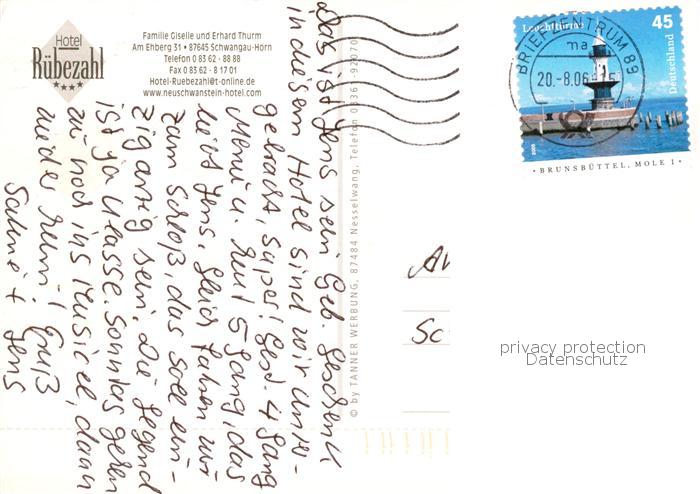 Hotel
Rübezahl
Familie Giselle und Erhard Thurm
Am Ehberg 31 • 87645 Schwangau-Horn
Telefon 0 83 62 - 88 88
Fax 0 83 62 - 8 17 01
Hotel-Ruebezahl@t-online.de
www.neuschwanstein-hotel.com
Das ist Jens sein Geb. Geschenk
in diesem Hotel sind wir unter-
gebracht, super! Gest. 4 Gang
Menü u. heut 5 Gang, das
liebt Jens. Gleich fahren wir
zum Schloß, das soll ein-
zigartig sein. Die Gegend
ist ja Klasse. Sonntag gehen
wir noch ins Musical, dann
wieder heim! Gruß
Sabine +
Jens
© by TANNER WERBUNG, 87484 Nesselwang, Telefon 08361-92070
BRIEFZENTRUM 89
ma
20.-8.06
Leuchttürme
45
Deutschland
2005
• BRUNSBÜTTEL, MOLE 1 •
privacy protection
Datenschutz